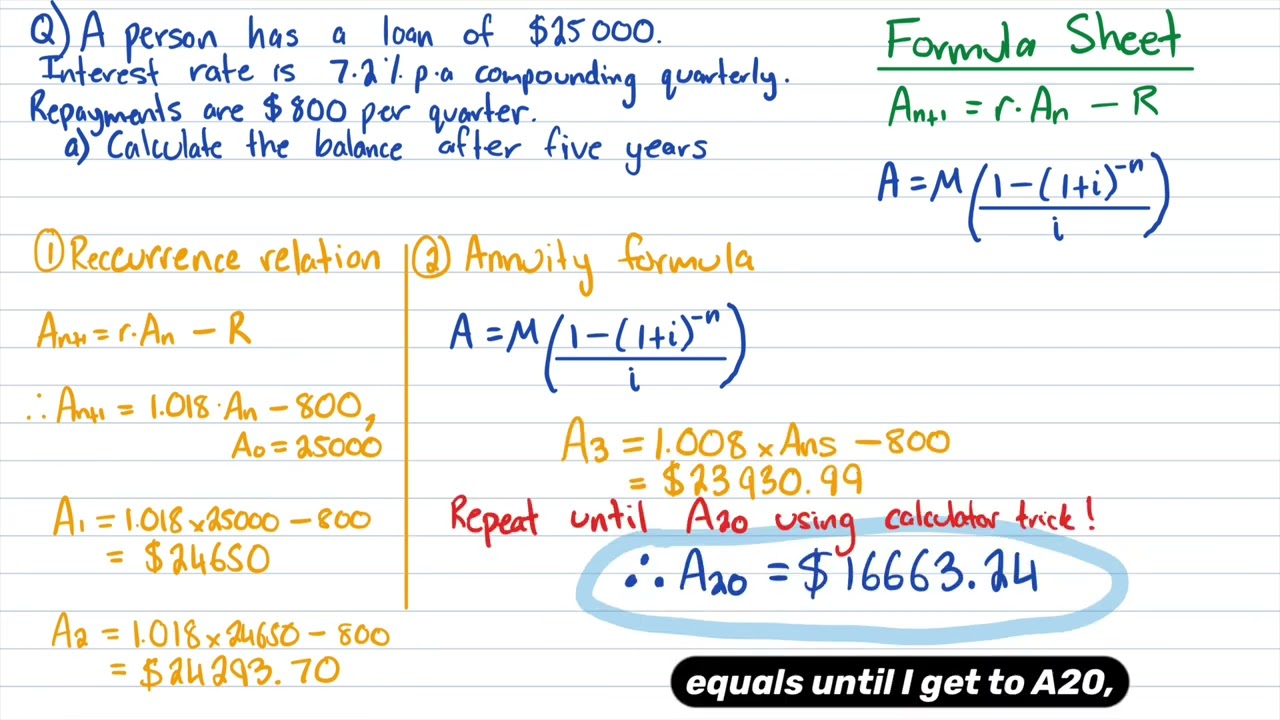 Q) A person has a loan of $25000.
Interest rate is 7.2% p.a compounding quarterly.
Repayments are $800 per quarter.
a) Calculate the balance after five years
Formula Sheet
An+1 = r·An − R
A = M(1−(1+i)^-n / i)
① Reccurrence relation
An+1 = r·An − R
∴ An+1 = 1.018·An − 800,
A0 = 25000
A1 = 1.018×25000 − 800
= $24650
A2 = 1.018×24650 − 800
= $24293.70
② Annuity formula
A = M(1−(1+i)^-n / i)
A3 = 1.008 × Ans − 800
= $23930.99
Repeat until A20 using calculator trick!
∴ A20 = $16663.24
equals until I get to A20,